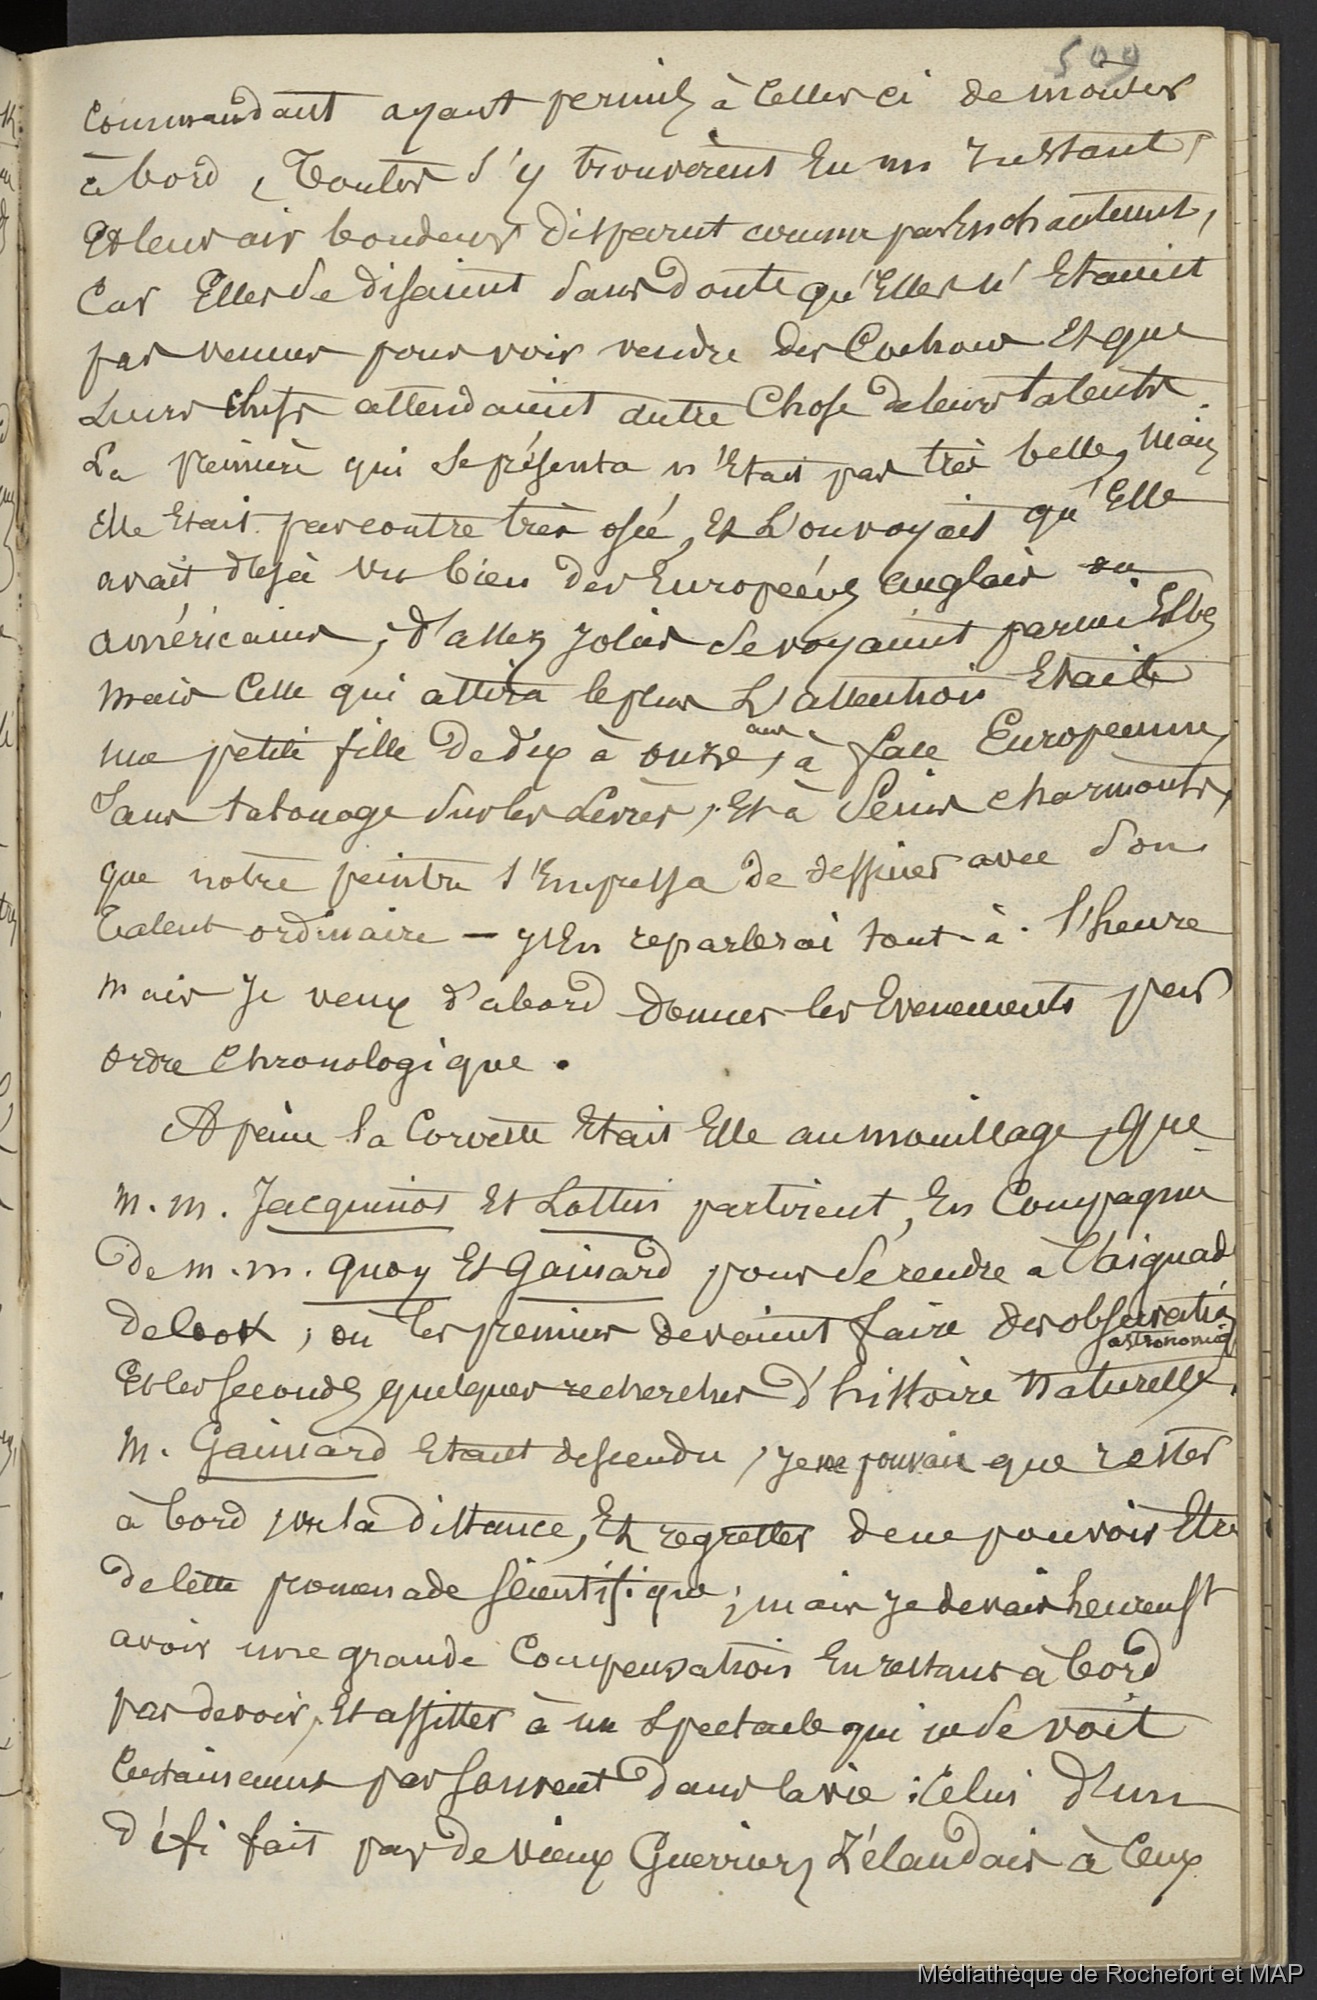 509
Commandant ayant permis à Celles ci de monter
à bord, Toutes s'y trouvèrent En un Instant,
Et leur air boudeur disparut comme par Enchantement,
Car Elles se disaient sans doute qu'Elles n'Etaient
pas venues pour voir vendre des Cochons Et que
Leurs chefs attendaient autre Chose de leurs talents.
La première qui se présenta n'Etait pas très belle, Mais
Elle Etait par contre très osée, Et L'on voyait qu'Elle
avait déjà vu bien des Européens anglais ou
américains, d'assez Jolies se voyaient parmi Elles
mais Celle qui attira le plus L'attention Etait
une petite fille De dix à onze ans, à face Europeenne,
Sans tatouage sur les Lèvres, Et à Seins charmants,
que notre peintre s'Empressa de dessiner avec son
Talent ordinaire — J'En reparlerai tout à l'heure
mais Je veux d'abord Donner les Evenements par
ordre Chronologique.
A peine la Corvette Etait Elle au mouillage, que
M. M. Jacquinot Et Lottin partirent, En Compagnie
De m. m. Quoy Et Gaimard pour se rendre a L'aiguade
de Cook, où les premiers devaient faire des observatio
astronomiq
Et les seconds quelques recherches d'histoire Naturelle,
M. Gaimard Etant descendu, Je ne pouvais que rester
à bord vu la distance, Et regretter de ne pouvoir Etre
de Cette promenade scientifique; mais Je devais heureust
avoir une grande Compensation En restant à bord
par devoir, Et assister à un Spectacle qui ne se voit
Certainement pas souvent Dans la vie: Celui d'un
défi fait par de vieux Guerriers Zélandais à Ceux
Médiathèque de Rochefort et MAP